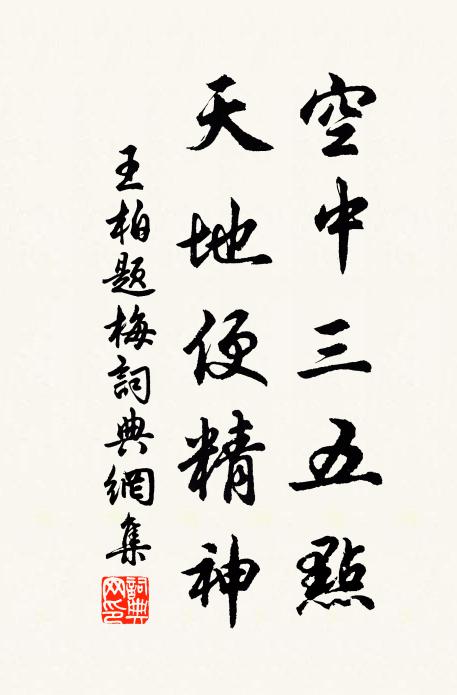 空中三五點
天地便精神
王柏題梅詞典網集
詞典網印